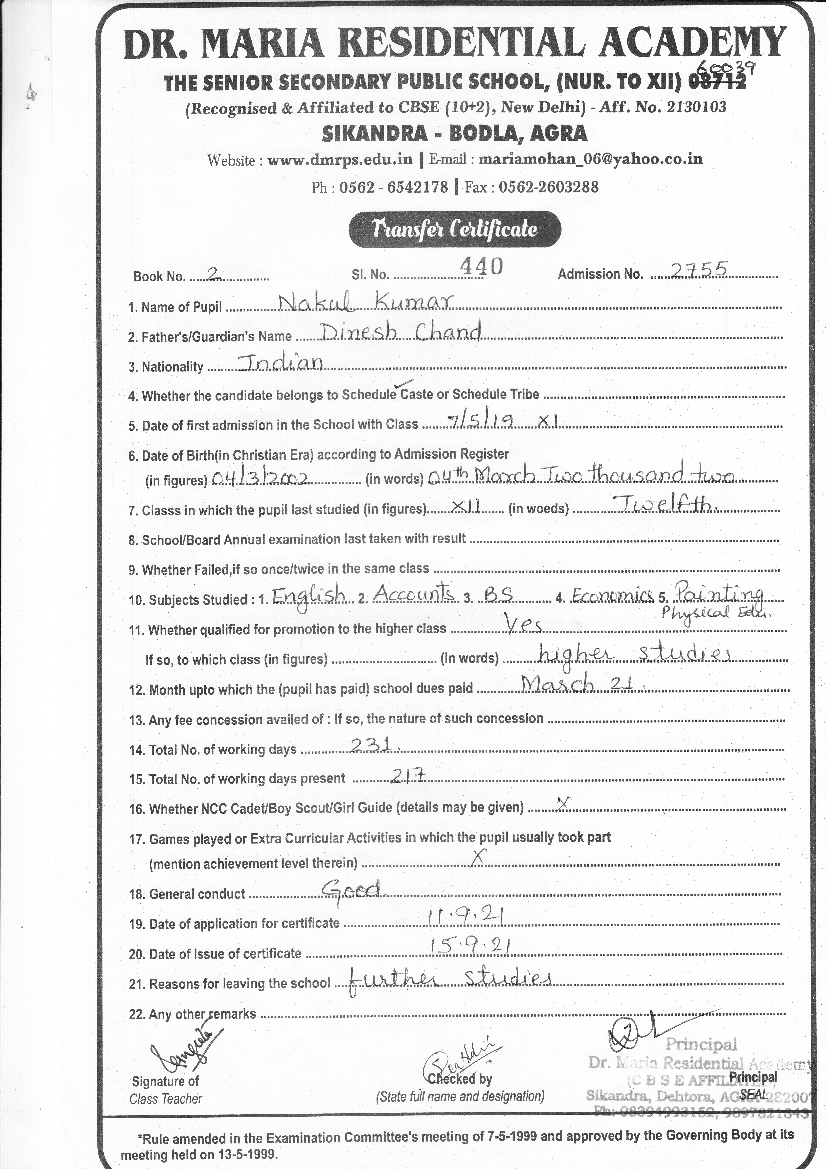 DR. MARIA RESIDENTIAL ACADEMY
60039
THE SENIOR SECONDARY PUBLIC SCHOOL, (NUR. TO XII) 03712
(Recognised & Affiliated to CBSE (10+2), New Delhi) - Aff. No. 2130103
SIKANDRA - BODLA, AGRA
Website : www.dmrps.edu.in | E-mail : mariamohan_06@yahoo.co.in
Ph : 0562 - 6542178 | Fax : 0562-2603288
Transfer Certificate
Book No. 2 Sl. No. 440 Admission No. 2755
1. Name of Pupil Nakul Kumar
2. Father's/Guardian's Name Dinesh Chand
3. Nationality Indian
4. Whether the candidate belongs to Schedule Caste or Schedule Tribe
5. Date of first admission in the School with Class 7/5/19 XI
6. Date of Birth(in Christian Era) according to Admission Register
(in figures) 04/3/2002 (in words) 04th March Two thousand two
7. Classs in which the pupil last studied (in figures) XII (in woeds) Twelfth
8. School/Board Annual examination last taken with result
9. Whether Failed,if so once/twice in the same class
10. Subjects Studied : 1. English 2. Accounts 3. BS 4. Economics 5. Painting
Physical Edu.
11. Whether qualified for promotion to the higher class Yes
If so, to which class (in figures) (in words) higher studies
12. Month upto which the (pupil has paid) school dues paid March 21
13. Any fee concession availed of : If so, the nature of such concession
14. Total No. of working days 231
15. Total No. of working days present 217
16. Whether NCC Cadet/Boy Scout/Girl Guide (details may be given) X
17. Games played or Extra Curricular Activities in which the pupil usually took part
(mention achievement level therein) X
18. General conduct Good
19. Date of application for certificate 11.9.21
20. Date of Issue of certificate 15.9.21
21. Reasons for leaving the school further studies
22. Any other remarks
Principal
Dr. Maria Residential Academy
Signature of Checked by (C B S E Principal
Class Teacher (State full name and designation) Sikandra, Dehtora, SEAL
*Rule amended in the Examination Committee's meeting of 7-5-1999 and approved by the Governing Body at its
meeting held on 13-5-1999.